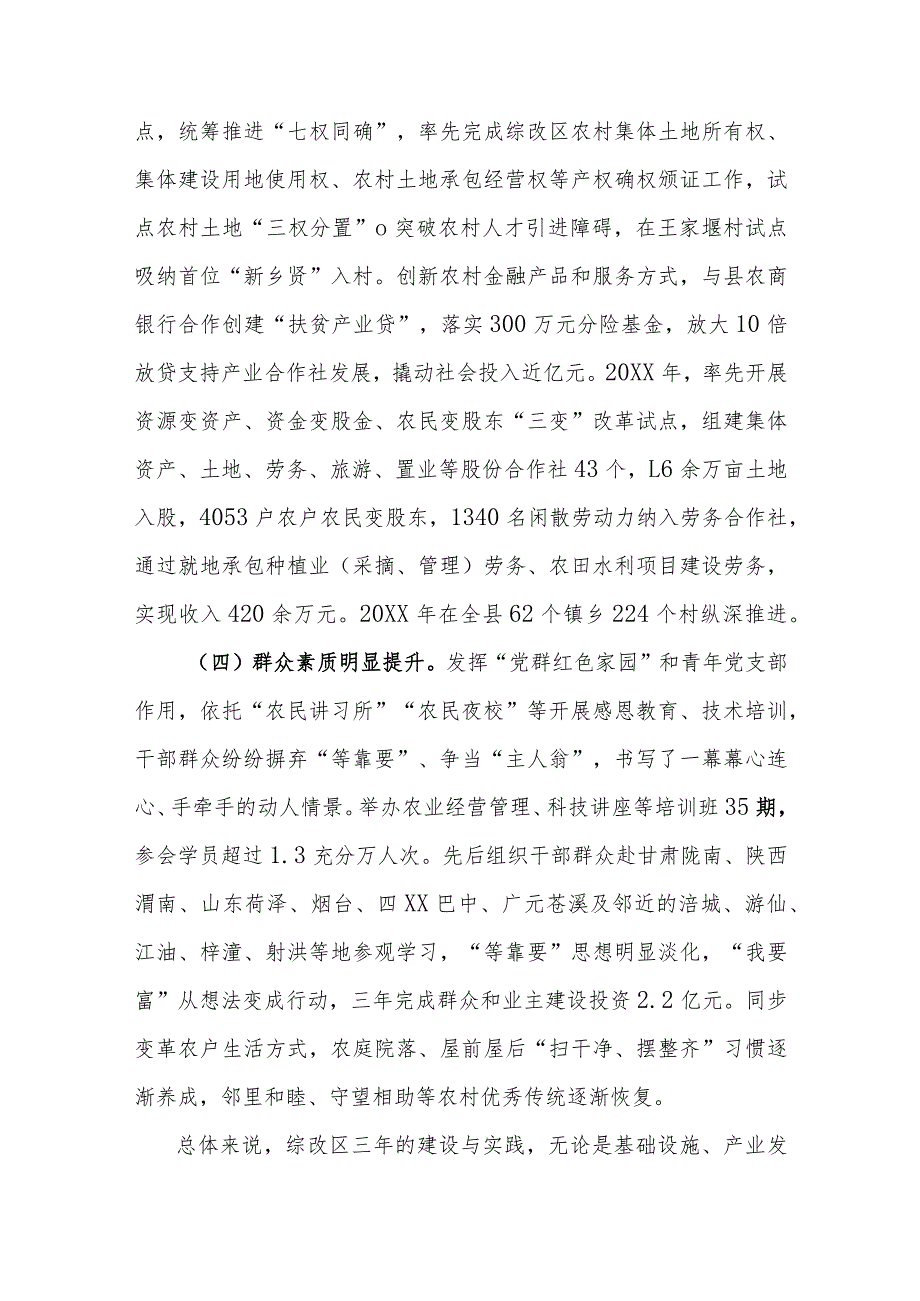 点，统筹推进“七权同确”，率先完成综改区农村集体土地所有权、
集体建设用地使用权、农村土地承包经营权等产权确权颁证工作，试
点农村土地“三权分置”o 突破农村人才引进障碍，在王家堰村试点
吸纳首位“新乡贤”入村。创新农村金融产品和服务方式，与县农商
银行合作创建“扶贫产业贷”，落实 300 万元分险基金，放大 10 倍
放贷支持产业合作社发展，撬动社会投入近亿元。20XX 年，率先开展
资源变资产、资金变股金、农民变股东“三变”改革试点，组建集体
资产、土地、劳务、旅游、置业等股份合作社 43 个，L6 余万亩土地
入股，4053 户农户农民变股东，1340 名闲散劳动力纳入劳务合作社，
通过就地承包种植业（采摘、管理）劳务、农田水利项目建设劳务，
实现收入 420 余万元。20XX 年在全县 62 个镇乡 224 个村纵深推进。
（四）群众素质明显提升。发挥“党群红色家园”和青年党支部
作用，依托“农民讲习所”“农民夜校”等开展感恩教育、技术培训，
干部群众纷纷摒弃“等靠要”、争当“主人翁”，书写了一幕幕心连
心、手牵手的动人情景。举办农业经营管理、科技讲座等培训班 35 期，
参会学员超过 1.3 充分万人次。先后组织干部群众赴甘肃陇南、陕西
渭南、山东荷泽、烟台、四 XX 巴中、广元苍溪及邻近的涪城、游仙、
江油、梓潼、射洪等地参观学习，“等靠要”思想明显淡化，“我要
富”从想法变成行动，三年完成群众和业主建设投资 2.2 亿元。同步
变革农户生活方式，农庭院落、屋前屋后“扫干净、摆整齐”习惯逐
渐养成，邻里和睦、守望相助等农村优秀传统逐渐恢复。
总体来说，综改区三年的建设与实践，无论是基础设施、产业发